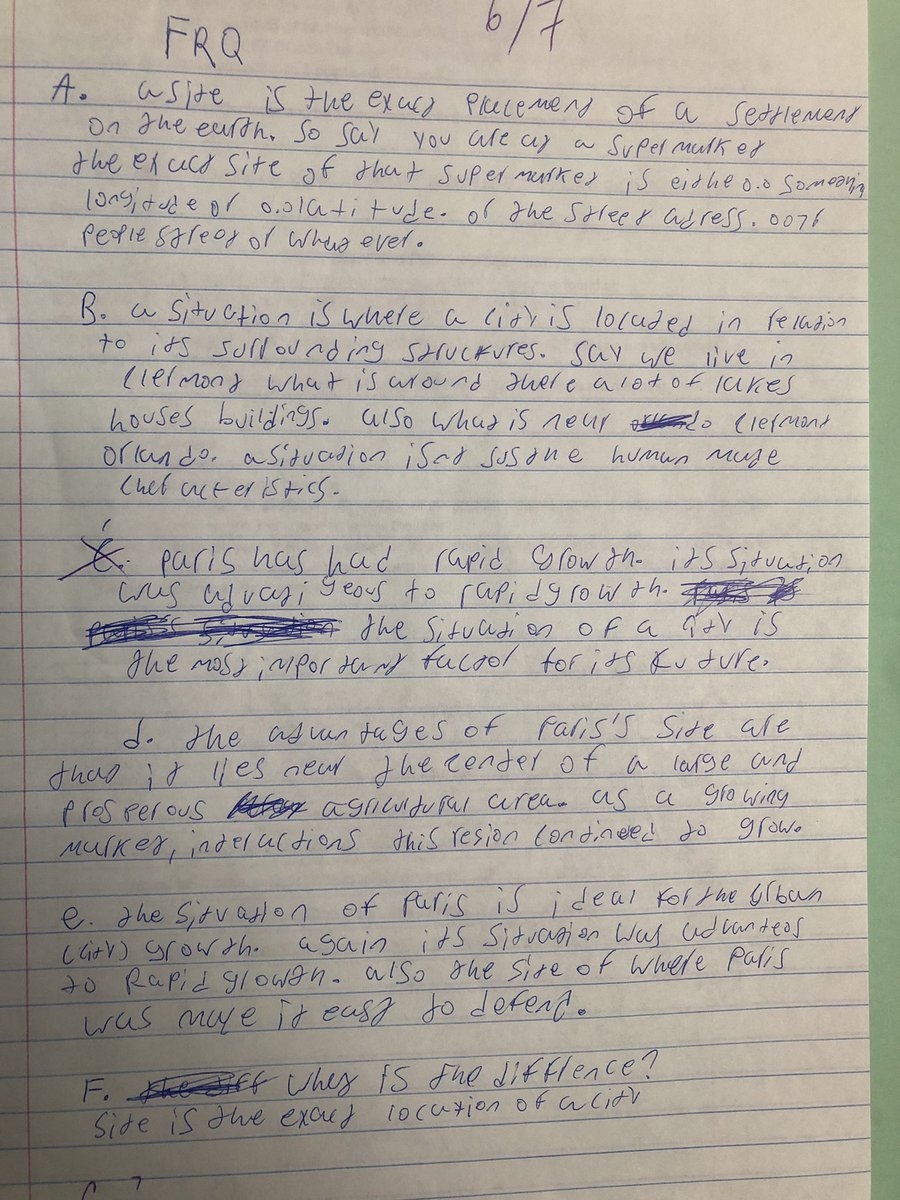 6/7
FRQ
A. a site is the exact placement of a settlement
on the earth. so say you are at a supermarket
the exact site of that supermarket is eithe 0.0 someting
longitude or 0.0 latitude. or the street adress. 0076
people street or what ever.
B. a situation is where a city is located in relation
to its surrounding structures. say we live in
Clermont what is around there a lot of lakes
houses buildings. also what is near to Clermont
Orlando. a situation isnt just the human made
characteristics.
C. Paris has had rapid growth. its situation
was advatigeous to rapid growth.
the situation of a city is
the most important factor for its future.
d. the advantages of Paris's site are
that it lies near the center of a large and
prosperous agricultural area. as a growing
market, interactions this region contined to grow.
e. the situation of Paris is ideal for the urban
(city) growth. again its situation was advanteos
to Rapid growth. also the site of where Paris
was made it easy to defend.
F. What is the diffrence?
Site is the exact location of a city